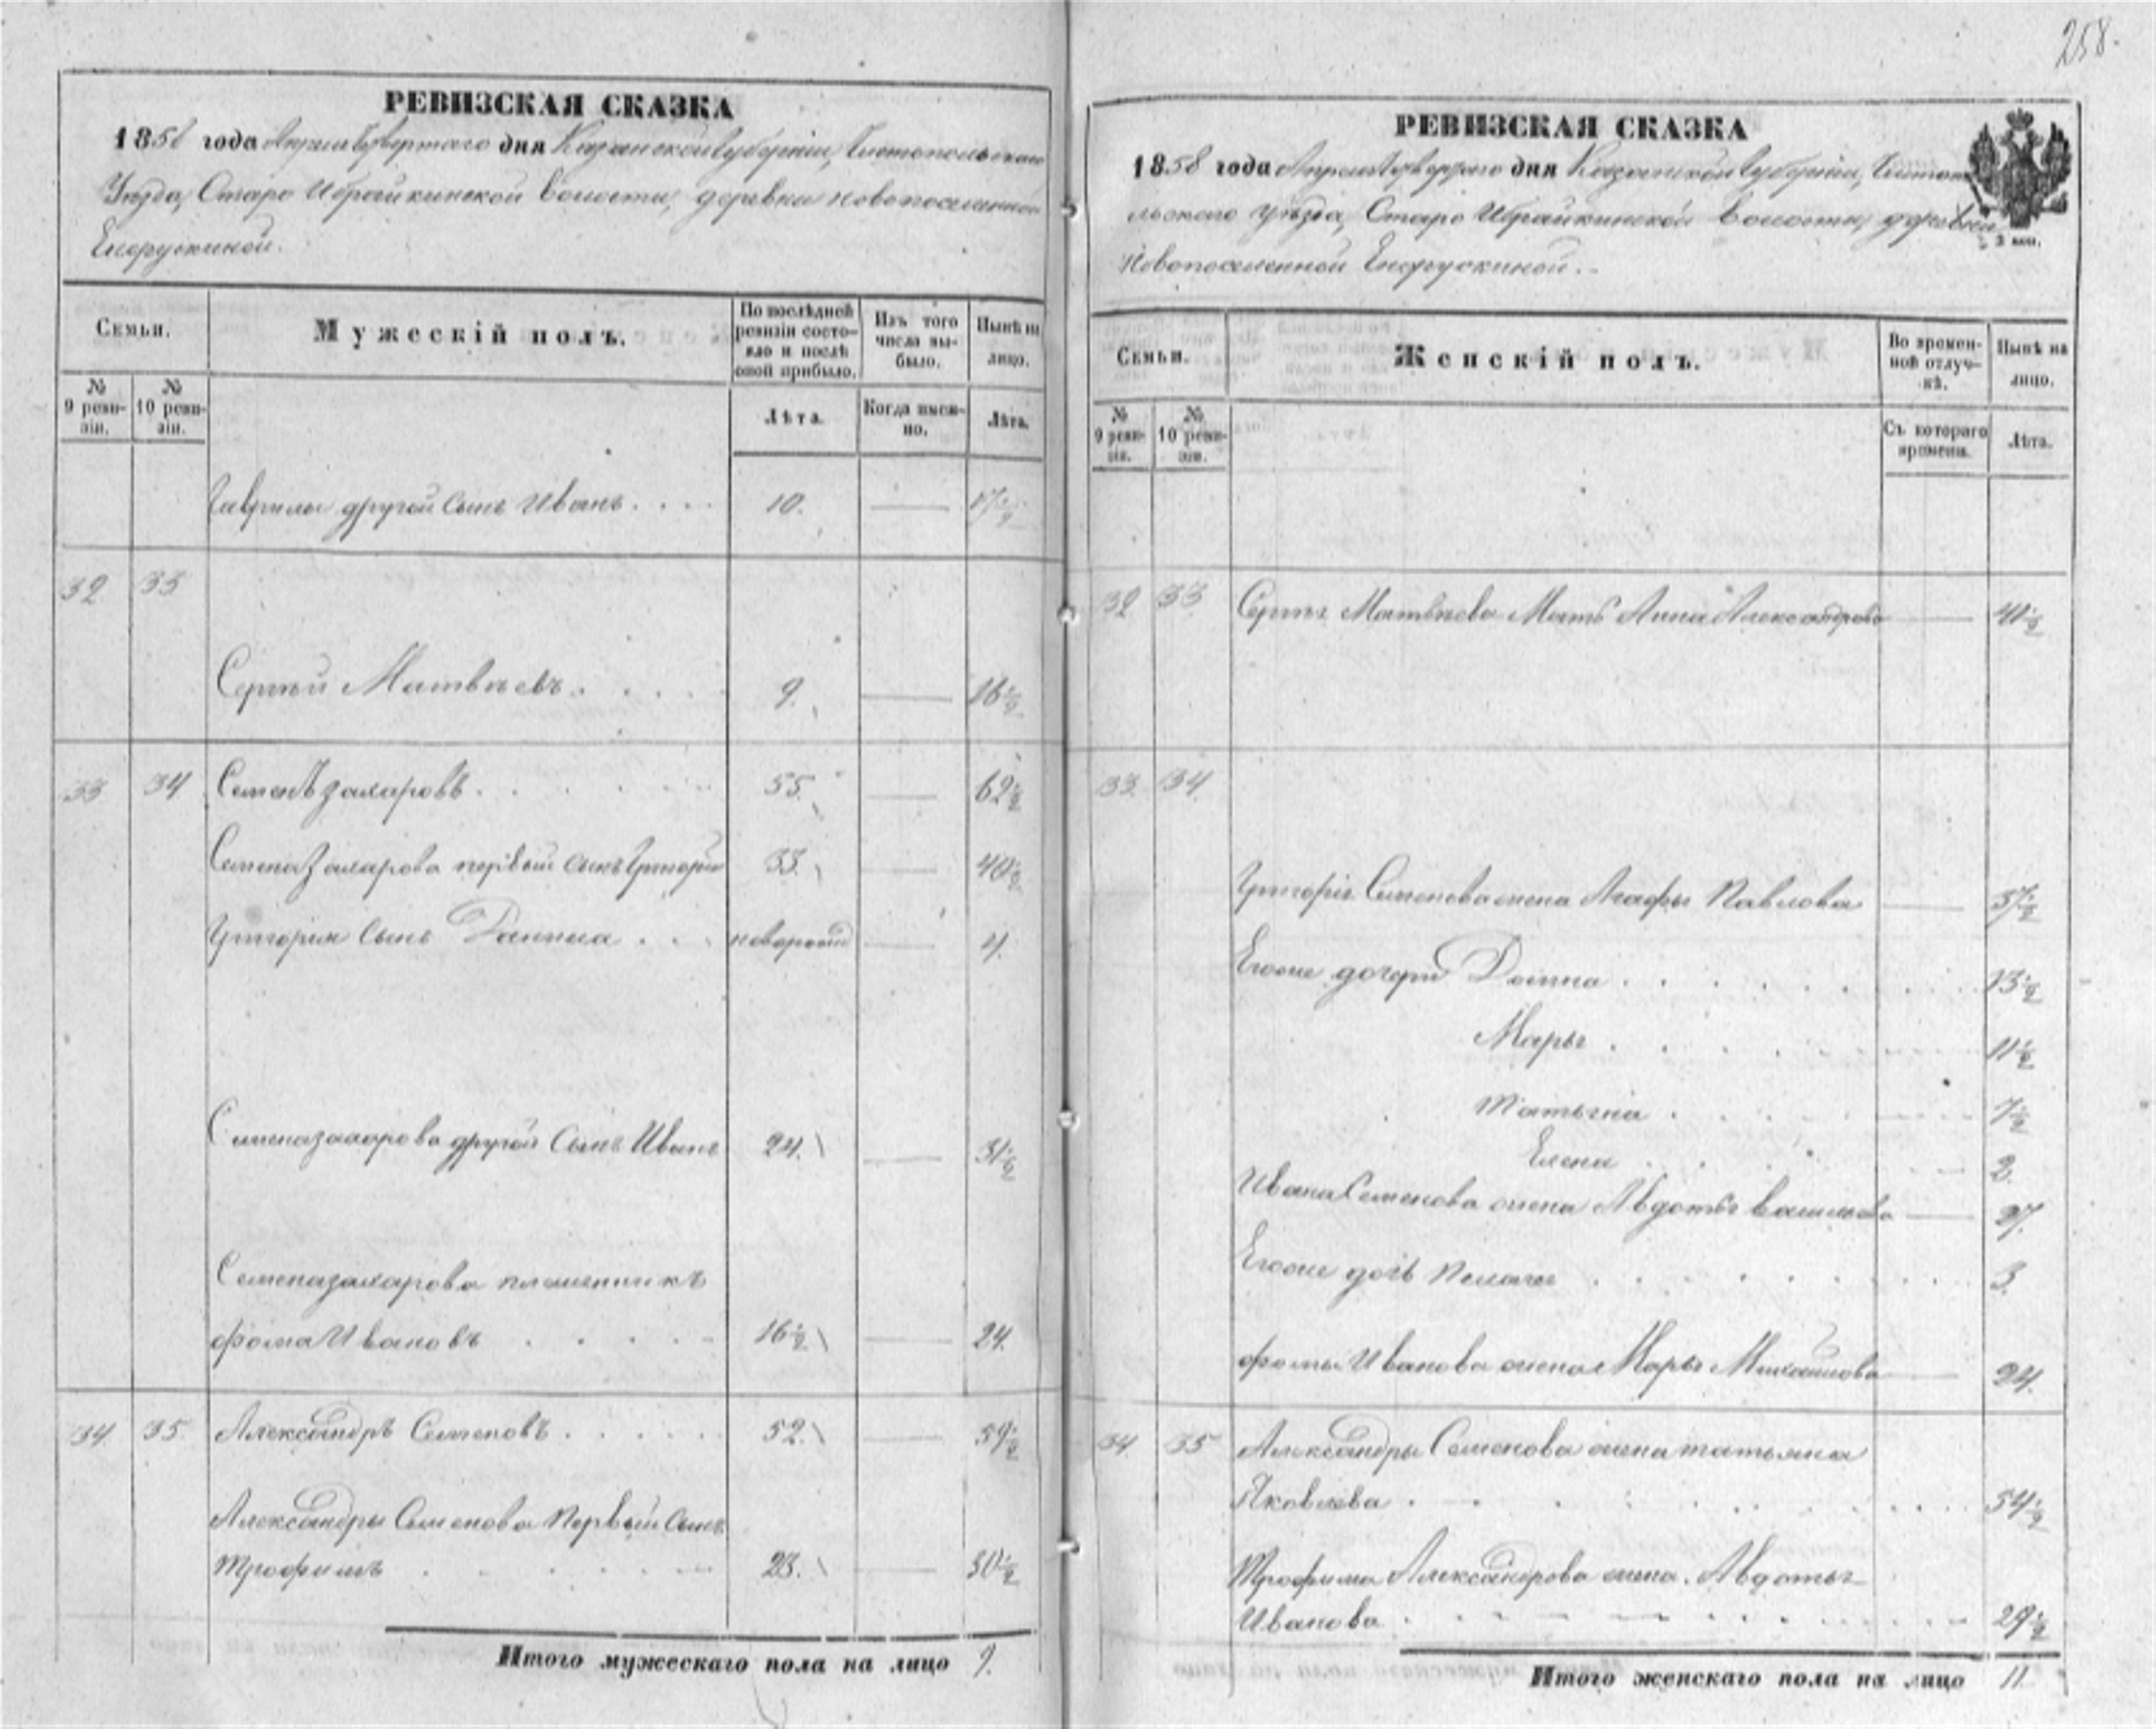 258.
РЕВИЗСКАЯ СКАЗКА
1858 года Апреля Четвертаго дня Казанской Губерніи, Чистопольскаго
Уезда, Старо Ибрайкинской Волости, деревни новопоселенной
Енорускиной.
Семьи.
Мужескій полъ.
По послѣдней ревизіи состояло и послѣ оной прибыло.
Изъ того числа выбыло.
Нынѣ на лицо.
№ 9 ревизіи.
№ 10 ревизіи.
Лѣта.
Когда именно.
Лѣта.
Гаврилы другой сынъ Иванъ. 10. 17 1/2
32 33
Сергѣй Матвѣевъ. 9. 16 1/2
33 34 Семенъ Захаровъ. 55. 62 1/2
Семена Захарова первый сынъ Григорій 33. 40 1/2
Григорія сынъ Данила новорожд 4.
Семена Захарова другой сынъ Иванъ 24. 31 1/2
Семена Захарова племянникъ
Фома Ивановъ 16 1/2 24.
34 35 Александръ Семеновъ. 52. 59 1/2
Александры Семенова Первый Сынъ
Трофимъ 23. 30 1/2
Итого мужескаго пола на лицо 9.
РЕВИЗСКАЯ СКАЗКА
1858 года Апреля Четвертаго дня Казанской Губерніи, Чистопо
льскаго уѣзда, Старо Ибрайкинской Волости, деревни
Новопоселенной Енорускиной.
3 коп.
Семьи.
Женскій полъ.
Во временной отлучкѣ.
Нынѣ на лицо.
№ 9 ревизіи.
№ 10 ревизіи.
Съ котораго времени.
Лѣта.
32 33 Сергѣя Матвѣева Мать Анна Александрова 41 1/2
33. 34.
Григорія Семенова жена Агафья Павлова 37 1/2
Егоже дочери Домна 13 1/2
Марья 11 1/2
Татьяна 7 1/2
Елена 2.
Ивана Семенова жена Авдотья Васильева 27.
Егоже дочь Пелагея 3.
Фомы Иванова жена Марья Михайлова 24.
34. 35 Александры Семенова жена татьяна
Яковлева 54 1/2
Трофима Александрова жена Авдотья
Иванова 29 1/2
Итого женскаго пола на лицо 11